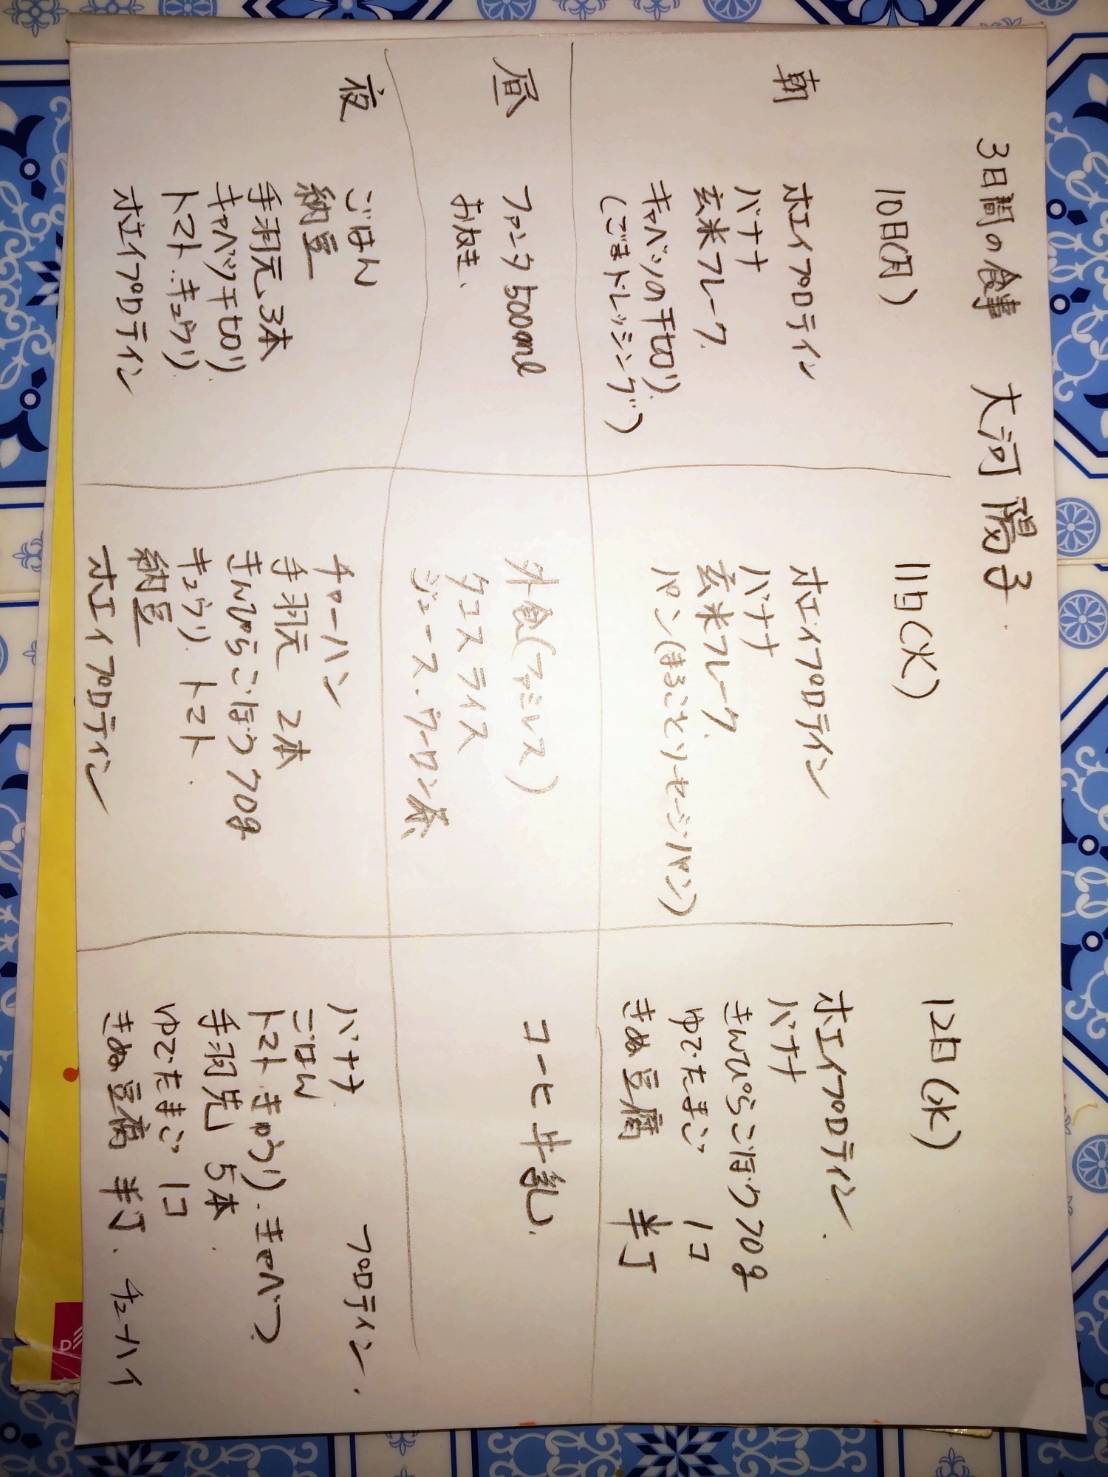 3日間の食事 大河 陽子
10日(月)
11日(火)
12日(水)
朝
ホエイプロテイン
バナナ
玄米フレーク
キャベツの千切り
(ごまドレッシング)
ホエイプロテイン
バナナ
玄米フレーク
パン(まるごとソーセージパン)
ホエイプロテイン
バナナ
きんぴらごぼう70g
ゆでたまご 1コ
きぬ豆腐 半丁
昼
ファンタ5000ml
お抜き、
外食(ファミレス)
タコスライス
ジュース・ウーロン茶
コーヒ牛乳
夜
ごはん
納豆
手羽元3本
キャベツ千切り
トマト.キュウリ
ホエイプロテイン
チャーハン
手羽元 2本
きんぴらごぼう70g
キュウリ トマト
納豆
ホエイプロテイン
バナナ プロテイン
ごはん
トマト.きゅうり.キャベツ
手羽先 5本
ゆでたまご 1コ
きぬ豆腐 半丁、チューハイ